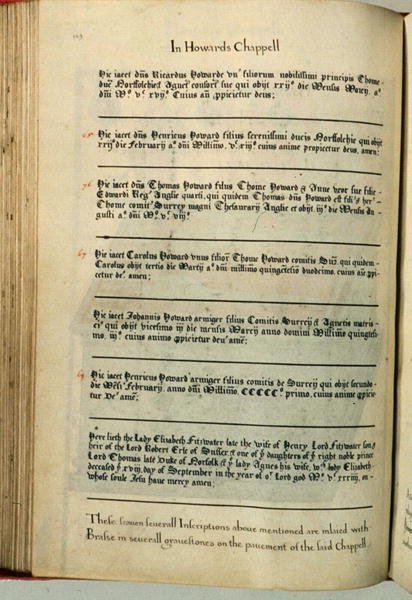 In Howards Chappell
Hic iacet dñs Ricardus Howarde vn' filiorum nobilissimi principis Thome
duc' Norffolchie & Agnet' consort' sue qui obijt xxij° die Mensis Marcij, a°
dñi M° v° xvij° Cuius añ ppicietur deus;
Hic iacet dñs Henricus Howard filius serenissimi ducis Norffolchie qui obijt
xxij° die February a° dñi Millimo, v° xiij° cuius anime propicetur deus, amen;
Hic iacet dñs Thomas Howard filius Thome Howard & Anne vror sue filie
Edwardi Reg' Anglie quarti, qui quidem Thomas dñs Howard est fili' & her'
Thome comit' Surrey magni Thesaurarij Anglie et obijt, iij° die Mensis Au-
gusti a° dñi M° v° viij°
67 Hic iacet Carolus Howard vnus filior' Thome Howard comitis Surr, qui quidem
Carolus obijt tertio die Marcij a° dñi millimo quingetesio duodecimo, cuius añ ppi-
cietur de' amen;
Hic iacet Johannis Howard armiger filius Comitis Surreij & Agnetis matris
ei' qui obijt vicesimo iij die mensis Marcij anno domini Millimo, quingtes-
mo, iij° cuius animo ppicietur deu' amē;
69 Hic iacet Henricus Howard armiger filius comitis de Surreij qui obijt secundo
die Mēs' February, anno dñi Millimo, CCCCC° primo, cuius anime ppicie-
tur De' amē;
Here lieth the Lady Elizabeth Fitzwater late the wife of Henry Lord Fitzwater son &
heir of the Lord Robert Erle of Sussex & one of yᵉ daughters of yᵉ right noble prince
Lord Thomas late Duke of Norfolk & yᵉ lady Agnes his wife, wᶜʰ lady Elizabeth
deceased yᵉ xviij day of September in the year of oʳ Lord god Mˡ v° xxxiiij, on
whose soule Jesu haue mercy amen;
These seauen seuerall Inscriptions aboue mentioned are inlaied with
Brasse in seuerall grauestones on the pauement of the said Chappell